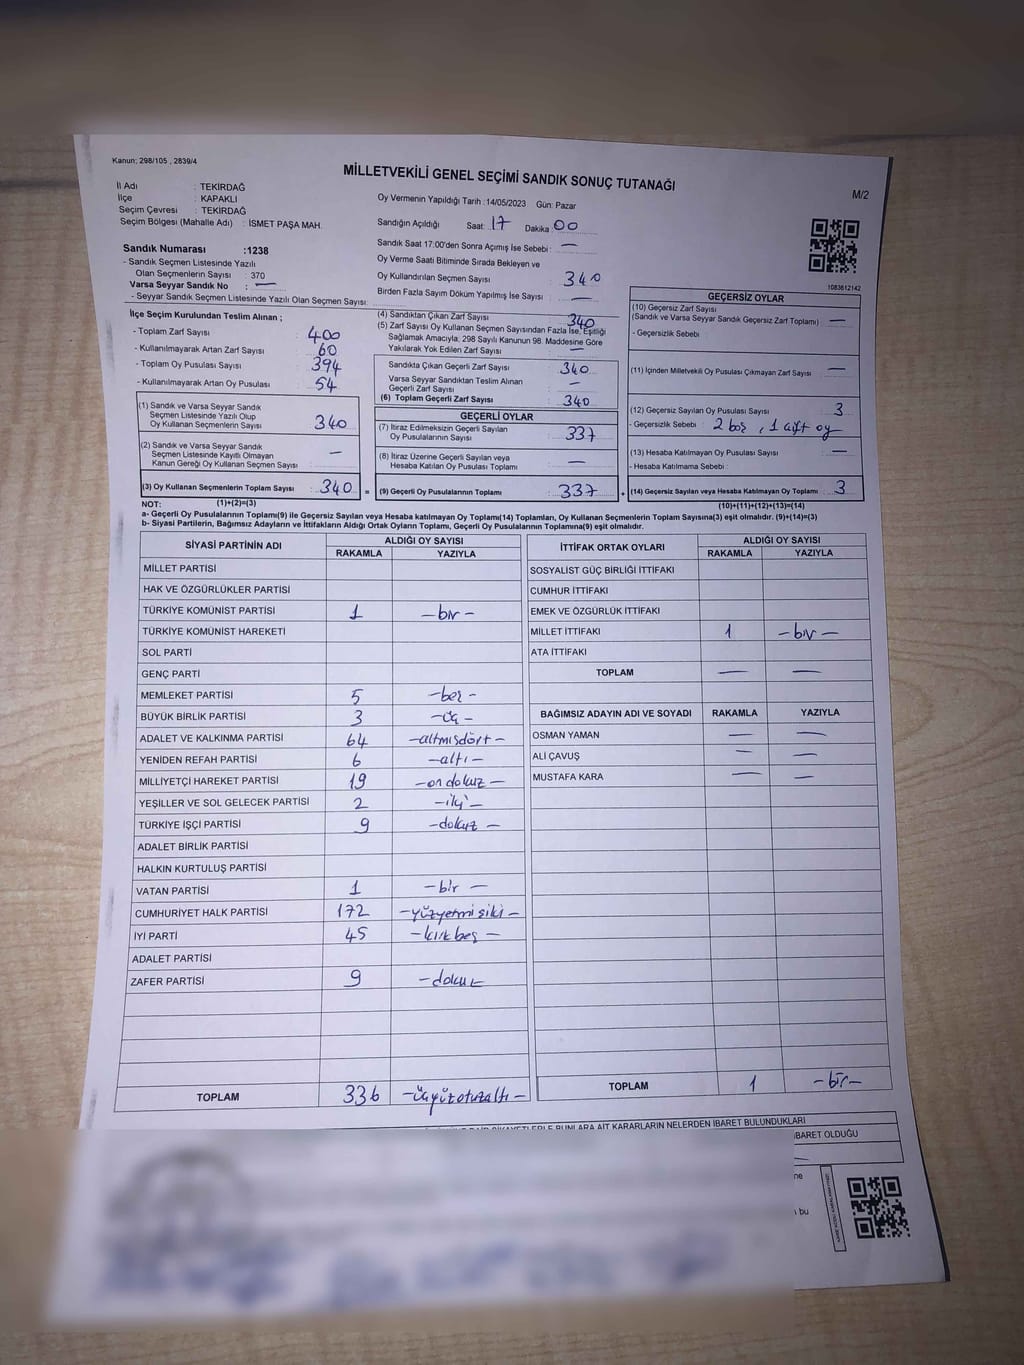 Kanun; 298/105 , 2839/4
MİLLETVEKİLİ GENEL SEÇİMİ SANDIK SONUÇ TUTANAĞI
M/2
İl Adı : TEKİRDAĞ
İlçe : KAPAKLI
Seçim Çevresi : TEKİRDAĞ
Seçim Bölgesi (Mahalle Adı) : İSMET PAŞA MAH.
Oy Vermenin Yapıldığı Tarih : 14/05/2023 Gün: Pazar
Sandığın Açıldığı Saat: 17 Dakika: 00
Sandık Saat 17:00'den Sonra Açımış İse Sebebi : —
Oy Verme Saati Bitiminde Sırada Bekleyen ve
Oy Kullandırılan Seçmen Sayısı : 340
Birden Fazla Sayım Döküm Yapılmış İse Sayısı : —
Sandık Numarası :1238
- Sandık Seçmen Listesinde Yazılı
Olan Seçmenlerin Sayısı : 370
Varsa Seyyar Sandık No : —
- Seyyar Sandık Seçmen Listesinde Yazılı Olan Seçmen Sayısı:
1083612142
İlçe Seçim Kurulundan Teslim Alınan ;
- Toplam Zarf Sayısı : 400
- Kullanılmayarak Artan Zarf Sayısı : 60
- Toplam Oy Pusulası Sayısı : 394
- Kullanılmayarak Artan Oy Pusulası : 54
(1) Sandık ve Varsa Seyyar Sandık
Seçmen Listesinde Yazılı Olup
Oy Kullanan Seçmenlerin Sayısı : 340
(2) Sandık ve Varsa Seyyar Sandık
Seçmen Listesinde Kayıtlı Olmayan
Kanun Gereği Oy Kullanan Seçmen Sayısı : —
(3) Oy Kullanan Seçmenlerin Toplam Sayısı : 340 =
(1)+(2)=(3)
(4) Sandıktan Çıkan Zarf Sayısı : 340
(5) Zarf Sayısı Oy Kullanan Seçmen Sayısından Fazla İse, Eşitliği
Sağlamak Amacıyla; 298 Sayılı Kanunun 98. Maddesine Göre
Yakılarak Yok Edilen Zarf Sayısı : —
Sandıkta Çıkan Geçerli Zarf Sayısı : 340
Varsa Seyyar Sandıktan Teslim Alınan
Geçerli Zarf Sayısı : —
(6) Toplam Geçerli Zarf Sayısı : 340
GEÇERLİ OYLAR
(7) İtiraz Edilmeksizin Geçerli Sayılan
Oy Pusulalarının Sayısı : 337
(8) İtiraz Üzerine Geçerli Sayılan veya
Hesaba Katılan Oy Pusulası Toplamı : —
(9) Geçerli Oy Pusulalarının Toplamı : 337 +
GEÇERSİZ OYLAR
(10) Geçersiz Zarf Sayısı
(Sandık ve Varsa Seyyar Sandık Geçersiz Zarf Toplamı) : —
- Geçersizlik Sebebi :
(11) İçinden Milletvekili Oy Pusulası Çıkmayan Zarf Sayısı : —
(12) Geçersiz Sayılan Oy Pusulası Sayısı : 3
- Geçersizlik Sebebi : 2 boş , 1 çift oy
(13) Hesaba Katılmayan Oy Pusulası Sayısı : —
- Hesaba Katılmama Sebebi :
(14) Geçersiz Sayılan veya Hesaba Katılmayan Oy Toplamı : 3
(10)+(11)+(12)+(13)=(14)
NOT:
a- Geçerli Oy Pusulalarının Toplamı(9) ile Geçersiz Sayılan veya Hesaba katılmayan Oy Toplamı(14) Toplamları, Oy Kullanan Seçmenlerin Toplam Sayısına(3) eşit olmalıdır. (9)+(14)=(3)
b- Siyasi Partilerin, Bağımsız Adayların ve İttifakların Aldığı Ortak Oyların Toplamı, Geçerli Oy Pusulalarının Toplamına(9) eşit olmalıdır.
SİYASİ PARTİNİN ADI ALDIĞI OY SAYISI
RAKAMLA YAZIYLA
MİLLET PARTİSİ
HAK VE ÖZGÜRLÜKLER PARTİSİ
TÜRKİYE KOMÜNİST PARTİSİ 1 –bir–
TÜRKİYE KOMÜNİST HAREKETİ
SOL PARTİ
GENÇ PARTİ
MEMLEKET PARTİSİ 5 –beş–
BÜYÜK BİRLİK PARTİSİ 3 –üç–
ADALET VE KALKINMA PARTİSİ 64 –altmışdört–
YENİDEN REFAH PARTİSİ 6 –altı–
MİLLİYETÇİ HAREKET PARTİSİ 19 –on dokuz–
YEŞİLLER VE SOL GELECEK PARTİSİ 2 –iki–
TÜRKİYE İŞÇİ PARTİSİ 9 –dokuz–
ADALET BİRLİK PARTİSİ
HALKIN KURTULUŞ PARTİSİ
VATAN PARTİSİ 1 –bir–
CUMHURİYET HALK PARTİSİ 172 –yüzyetmişiki–
İYİ PARTİ 45 –kırkbeş–
ADALET PARTİSİ
ZAFER PARTİSİ 9 –dokuz
TOPLAM 336 –üçyüzotuzaltı–
İTTİFAK ORTAK OYLARI ALDIĞI OY SAYISI
RAKAMLA YAZIYLA
SOSYALİST GÜÇ BİRLİĞİ İTTİFAKI
CUMHUR İTTİFAKI
EMEK VE ÖZGÜRLÜK İTTİFAKI
MİLLET İTTİFAKI 1 –bir–
ATA İTTİFAKI
TOPLAM — —
BAĞIMSIZ ADAYIN ADI VE SOYADI RAKAMLA YAZIYLA
OSMAN YAMAN — —
ALİ ÇAVUŞ — —
MUSTAFA KARA — —
TOPLAM 1 –bir–
BUNLARA AİT KARARLARIN NELERDEN İBARET BULUNDUKLARI
İBARET OLDUĞU
bu